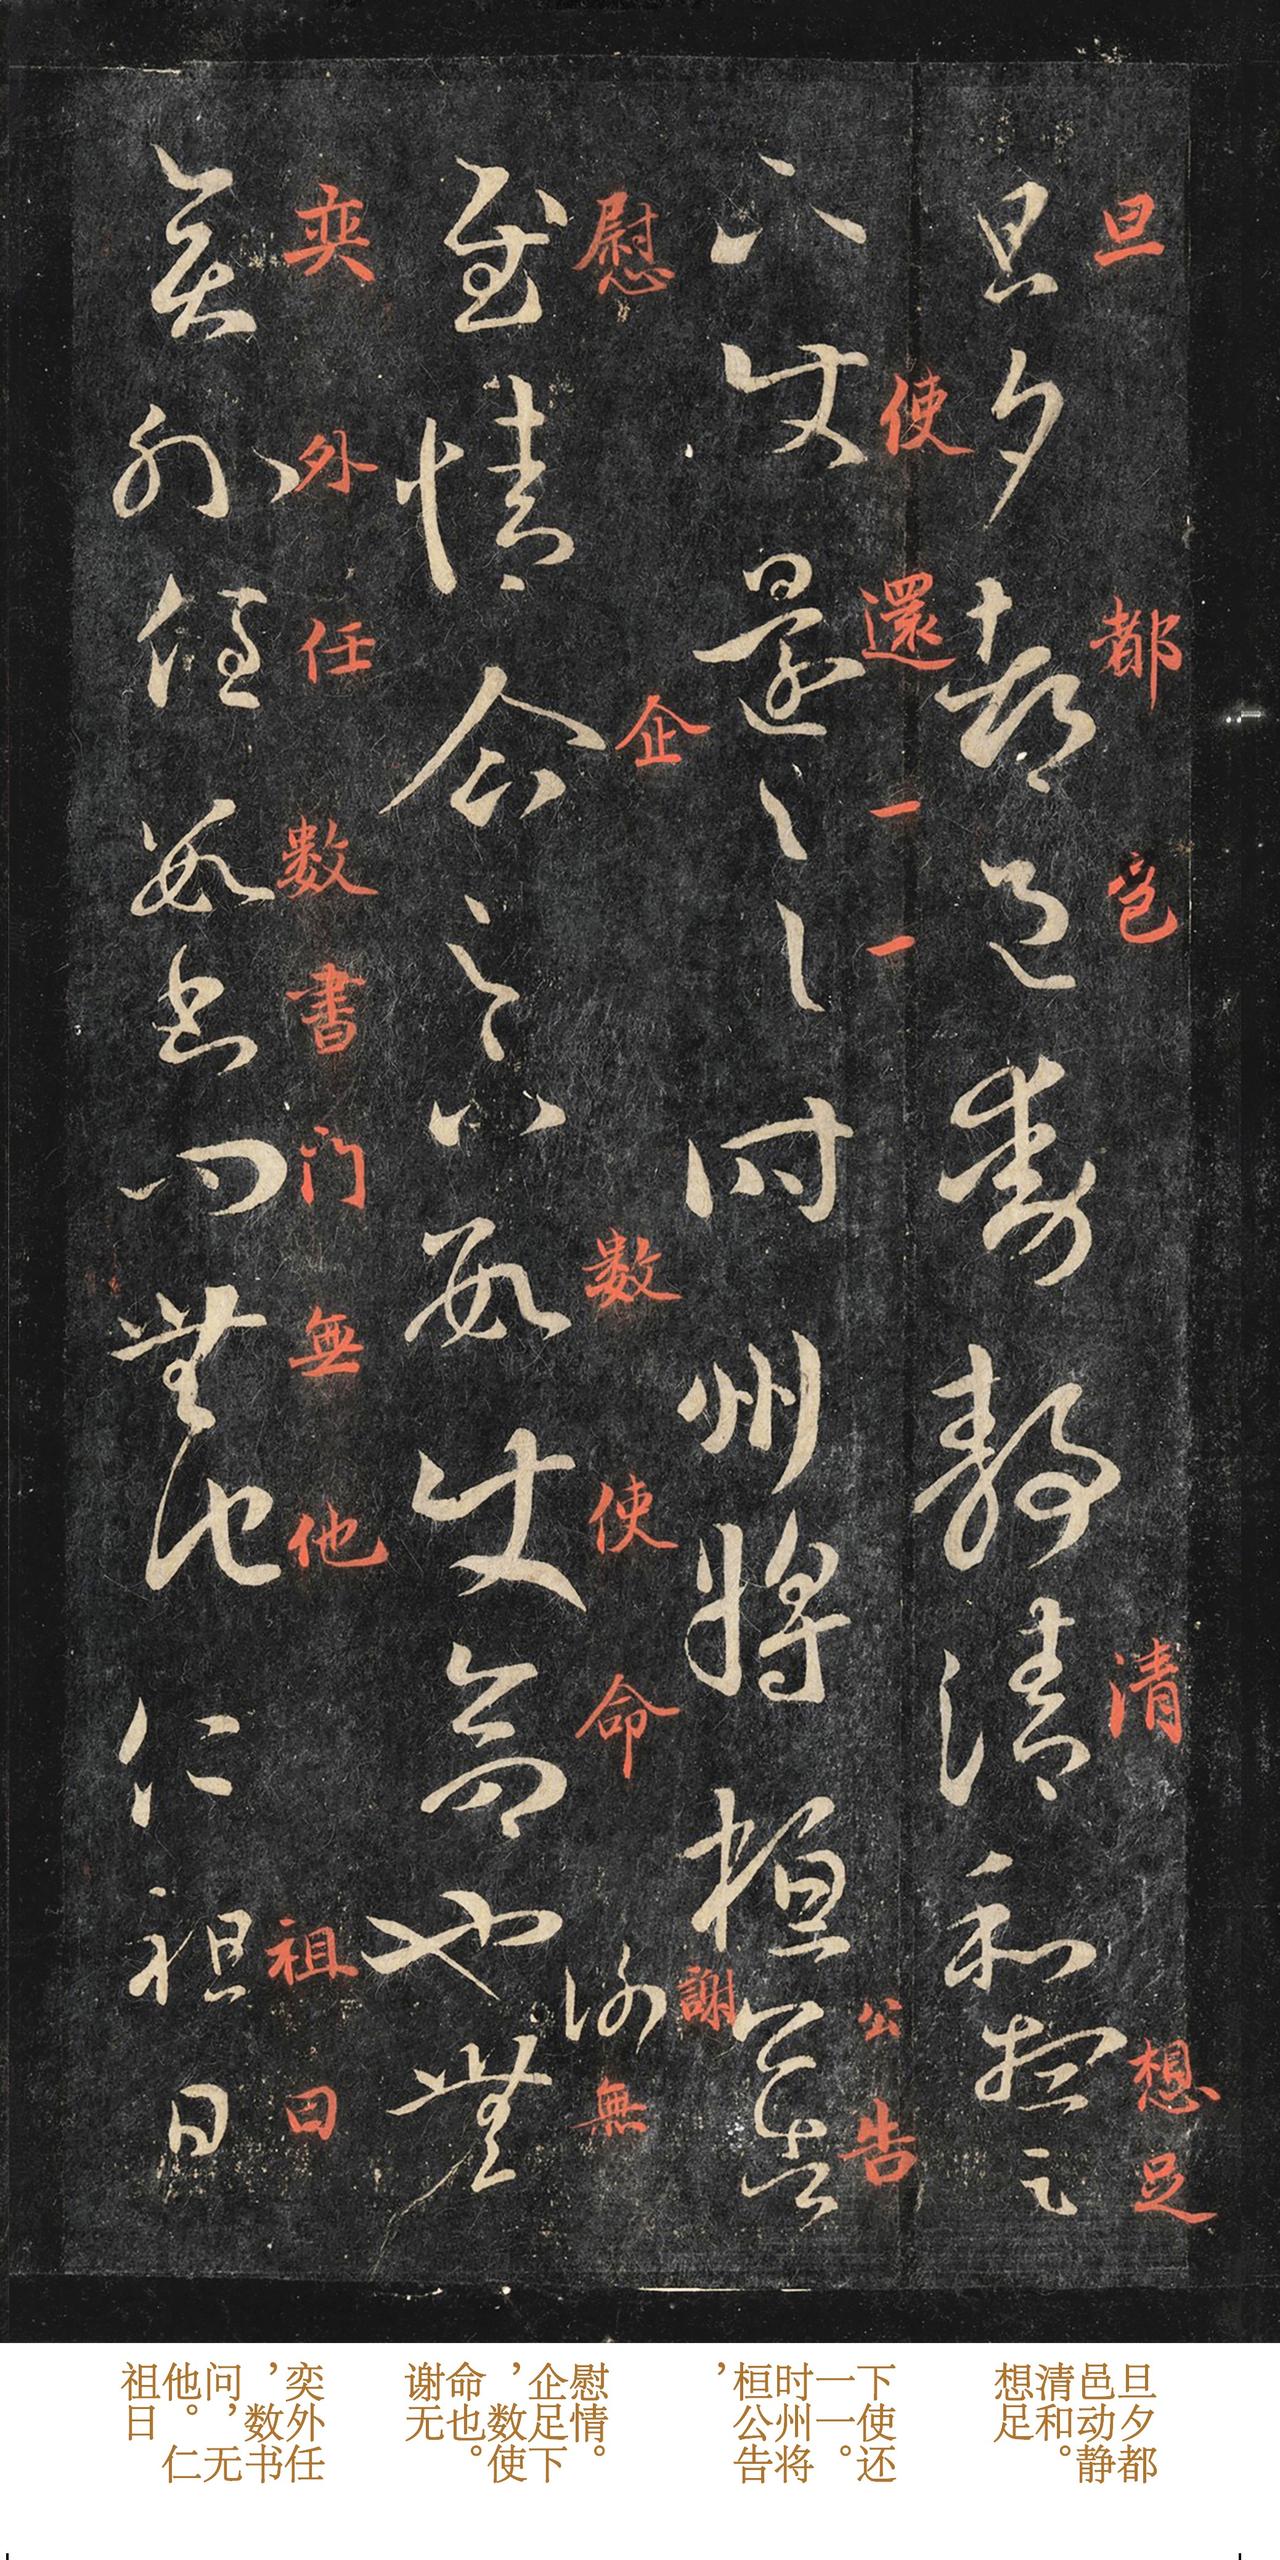 旦都邑清想足
旦夕都邑動静清和想足
使還一一公告
下使還一一時州將桓公告
慰企数使命謝無
慰情企足下數使命也謝無
奕外任数書门無他祖日
奕外任數書問無他仁祖日
旦夕都
邑动静
清和。
想足
下使还
一一。
时州将
桓公告
，
慰情。
企足下
，数使
命也。
谢无
奕外任
，数书
问，无
他。仁
祖日